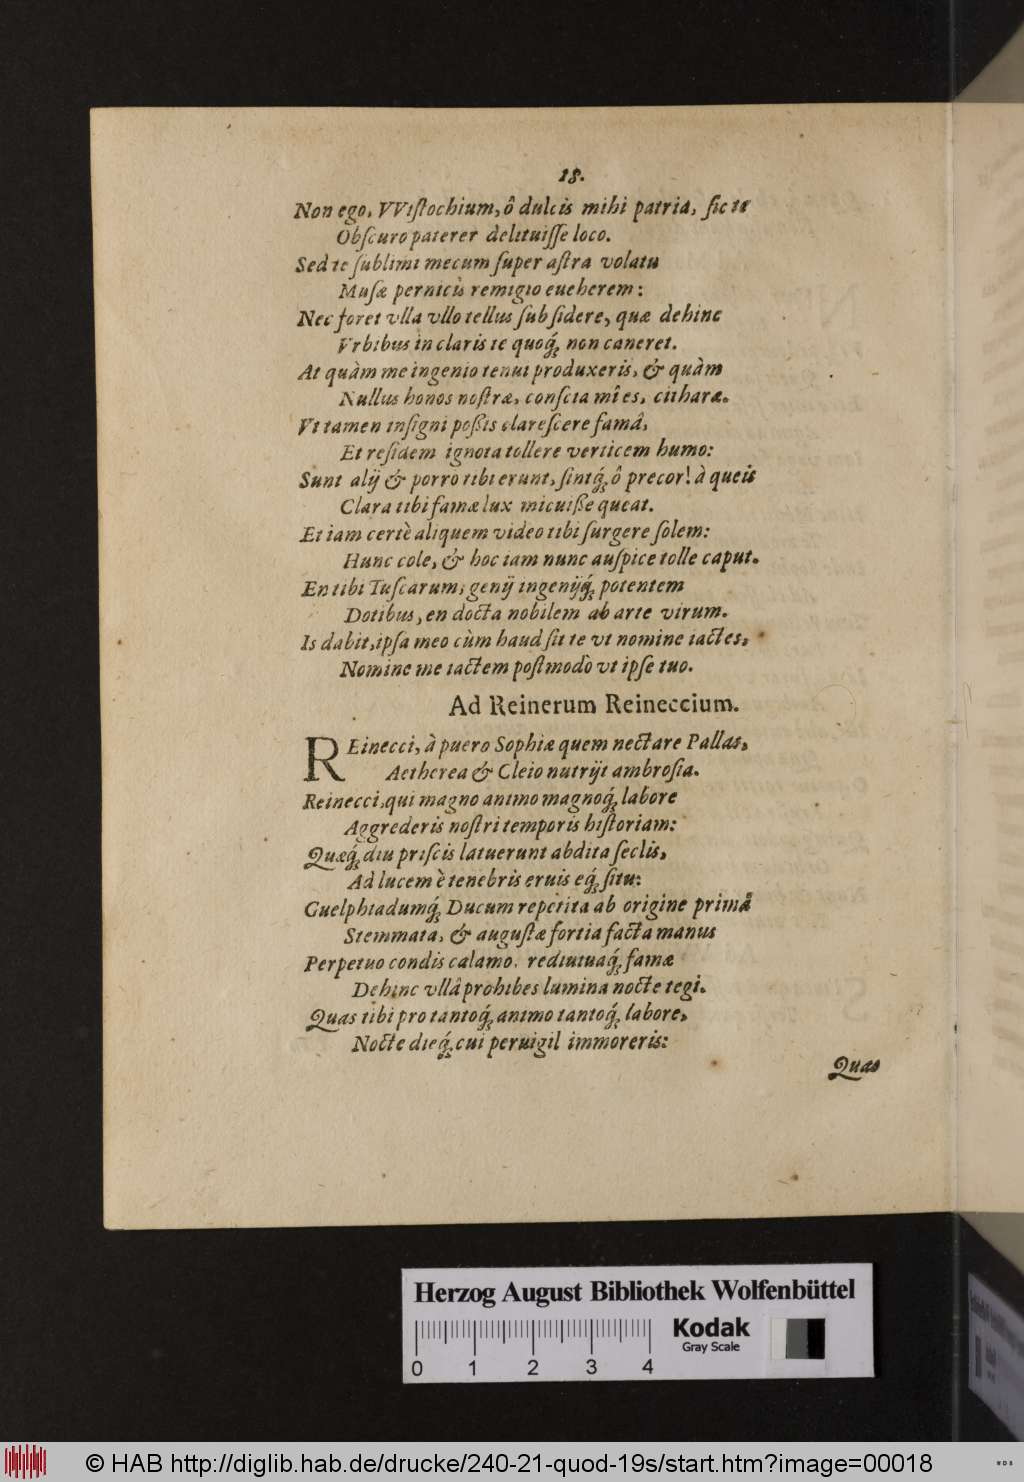 18.
Non ego, VVistochium, ô dulcis mihi patria, sic te
Obscuro paterer delituisse loco.
Sed te sublimi mecum super astra volatu
Musæ pernicis remigio eueherem:
Nec foret vlla vllo tellus subsidere, quæ dehinc
Vrbibus in claris te quoq́ꝫ non caneret.
At quàm me ingenio tenui produxeris, & quàm
Nullus honos nostræ, conscia mî es, citharæ.
Vt tamen insigni poßis clarescere famâ,
Et residem ignota tollere verticem humo:
Sunt alij & porro tibi erunt, sintq́ꝫ ô precor! à queis
Clara tibi famæ lux micuiße queat.
Et iam certè aliquem video tibi surgere solem:
Hunc cole, & hoc iam nunc auspice tolle caput.
En tibi Tuscarum, genij ingenijq́ꝫ potentem
Dotibus, en docta nobilem ab arte virum.
Is dabit, ipsa meo cùm haud sit te vt nomine iactes,
Nomine me iactem postmodò vt ipse tuo.
Ad Reinerum Reineccium.
REinecci, à puero Sophiæ quem nectare Pallas,
Aetherea & Cleio nutrijt ambrosia.
Reinecci, qui magno animo magnoq́ꝫ labore
Aggrederis nostri temporis historiam:
Quæq́ꝫ diu priscis latuerunt abdita seclis,
Ad lucem è tenebris eruis eq́ꝫ situ:
Guelphiadumq́ꝫ Ducum repetita ab origine primâ
Stemmata, & augustæ fortia facta manus
Perpetuo condis calamo, rediuiuaq́ꝫ famæ
Dehinc vllâ prohibes lumina nocte tegi.
Quas tibi pro tantoq́ꝫ animo tantoq́ꝫ labore,
Nocte dieq́ꝫ cui peruigil immoreris:
Quas
Herzog August Bibliothek Wolfenbüttel
0 1 2 3 4
Kodak
Gray Scale
© HAB http://diglib.hab.de/drucke/240-21-quod-19s/start.htm?image=00018